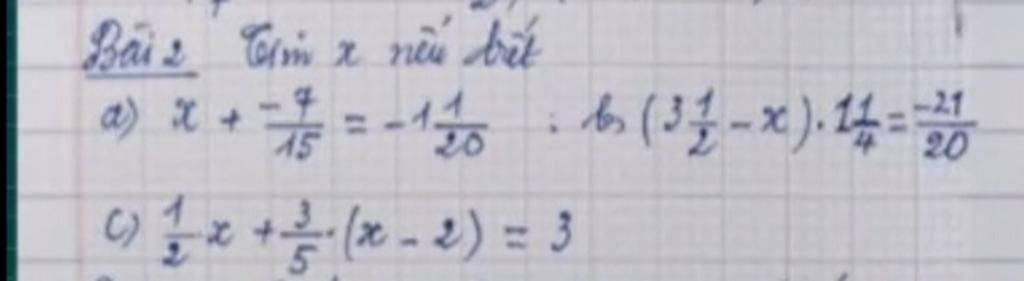 Bài 2 Tìm x nếu biết
a) x + -7/15 = -1 1/20 ; b) (3 1/2 - x) . 1 1/4 = -21/20
c) 1/2 x + 3/5 . (x - 2) = 3